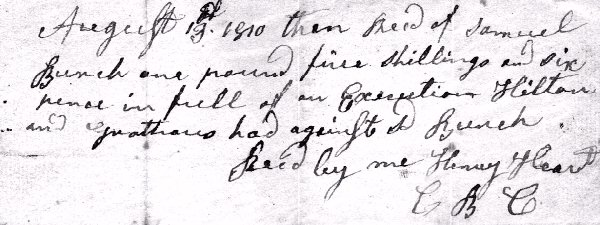 August 13th 1810 then Recd of Samuel
Bunch one pound five shillings and six
pence in full of an Execution Hilton
and had against sd Bunch.
Recd by me Henry Heart
C B C